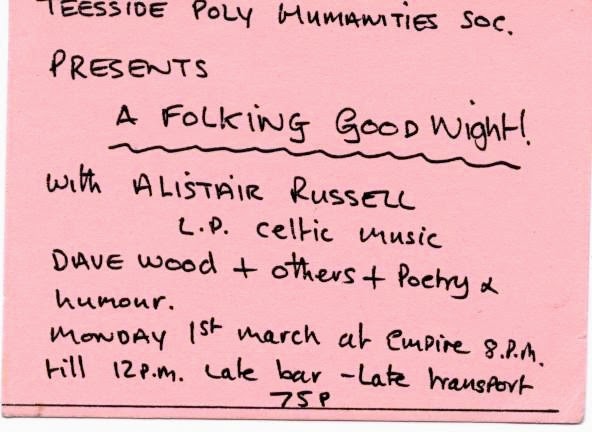 TEESSIDE POLY HUMANITIES SOC.
PRESENTS
A FOLKING GOOD Night!
with ALISTAIR RUSSELL
L.P. celtic music
DAVE wood + others + Poetry &
humour.
MONDAY 1st march at Empire 8.P.M.
till 12P.M. Late bar - Late transport
75P